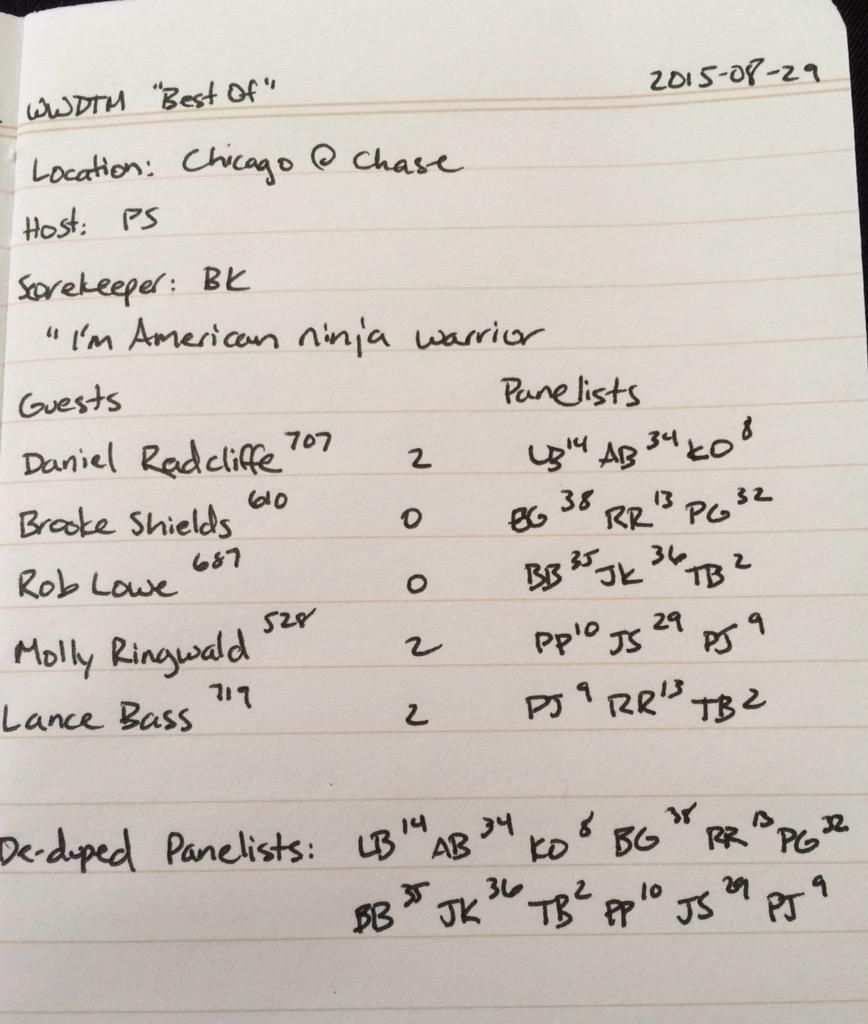 WWDTM "Best Of" 2015-08-29
Location: Chicago @ Chase
Host: PS
Scorekeeper: BK
"I'm American ninja warrior
Guests Panelists
Daniel Radcliffe 707 2 LB 14 AB 34 KO 8
Brooke Shields 610 0 BG 38 RR 13 PG 32
Rob Lowe 687 0 BB 35 JK 36 TB 2
Molly Ringwald 528 2 PP 10 JS 29 PJ 9
Lance Bass 717 2 PJ 9 RR 13 TB 2
De-duped Panelists: LB 14 AB 34 KO 8 BG 38 RR 13 PG 32
BB 35 JK 36 TB 2 PP 10 JS 29 PJ 9